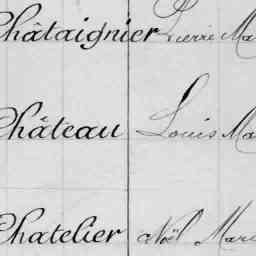 Châtaignier Pierre Ma
Château Louis Ma
Chatelier Noël Mari